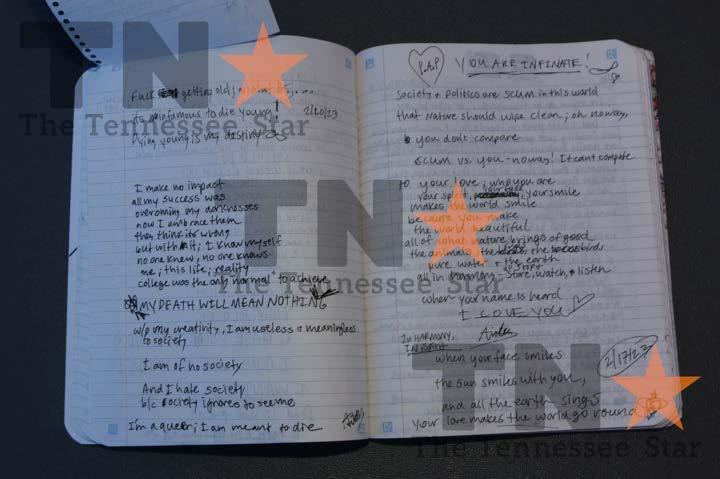 Fuck getting old; all that BS,...
its infamous to die young!
2/10/23
Dying young is my destiny
I make no impact
all my success was
overcoming my darknesses
now I embrace them
they think its wrong
but with it, I know myself
no one knew, no one knows
me; this life; reality
college was the only "normal" to achieve
MY DEATH WILL MEAN NOTHING
w/o my creativity, I am useless & meaningless
to society
I am of no society
And I hate society
b/c society ignores to see me
I'm a queer; I am meant to die
P.A.P
YOU ARE INFINATE!
Society & Politics are scum in this world
that Nature should wipe clean; oh no way,
you don't compare
scum vs. you - no way! It cant compete
to your love, who you are
your spirit, your smile
makes the world smile
because you make
the world beautiful
all of what nature brings of good
the animals, the birds
pure water, the earth
all in harmony - stare, watch, & listen
when your name is heard
I LOVE YOU
IN HARMONY,
IN SPIRIT
when your face smiles
2/17/23
the sun smiles with you,
and all the earth sings
your love makes the world go round
TN
The Tennessee Star
TN
The Tennessee Star
TN
The Tennessee Star